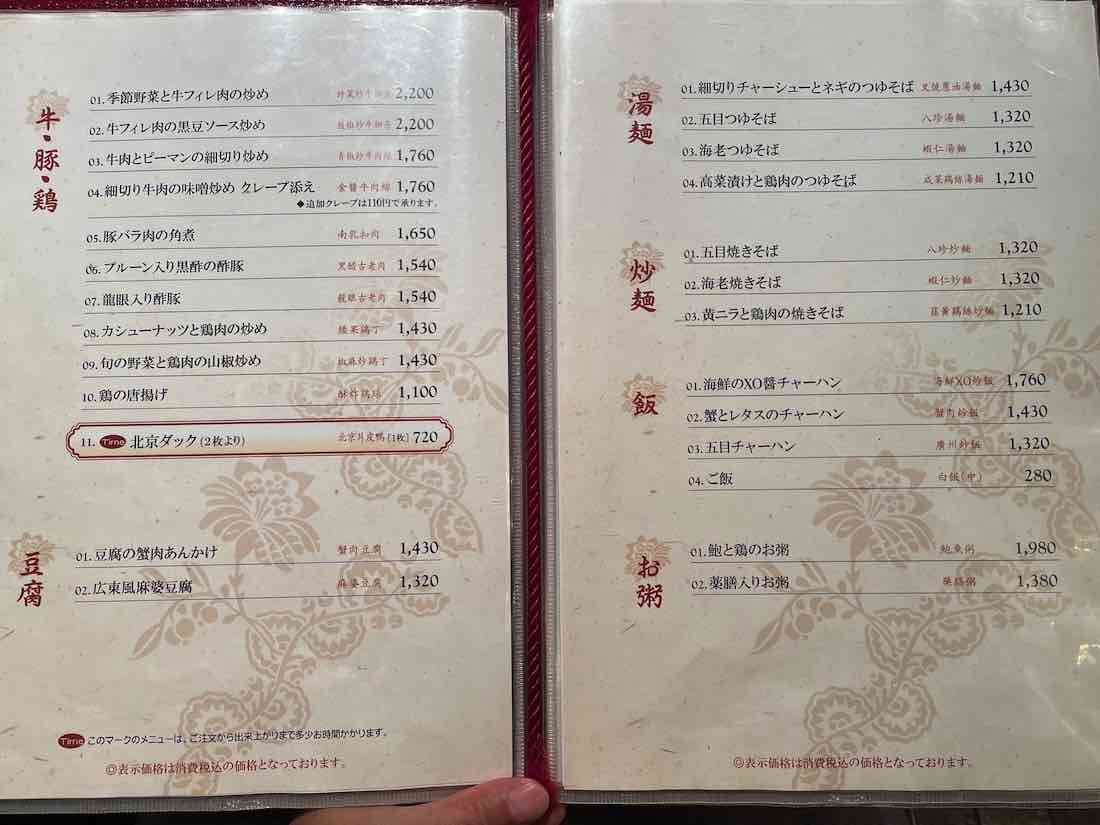 牛・豚・鶏
01.季節野菜と牛フィレ肉の炒め 2,200
02.牛フィレ肉の黒豆ソース炒め 2,200
03.牛肉とピーマンの細切り炒め 青椒炒牛肉絲 1,760
04.細切り牛肉の味噌炒め クレープ添え 金醬牛肉絲 1,760
◆追加クレープは110円で承ります。
05.豚バラ肉の角煮 南乳扣肉 1,650
06.プルーン入り黒酢の酢豚 黑醋古老肉 1,540
07.龍眼入り酢豚 龍眼古老肉 1,540
08.カシューナッツと鶏肉の炒め 腰果鶏丁 1,430
09.旬の野菜と鶏肉の山椒炒め 椒麻炒鶏丁 1,430
10.鶏の唐揚げ 酥炸鶏球 1,100
11. Time 北京ダック(2枚より) 北京片皮鴨(1枚) 720
豆腐
01.豆腐の蟹肉あんかけ 蟹肉豆腐 1,430
02.広東風麻婆豆腐 麻婆豆腐 1,320
Time このマークのメニューは、ご注文から出来上がりまで多少お時間かかります。
◎表示価格は消費税込の価格となっております。
湯麺
01.細切りチャーシューとネギのつゆそば 叉焼葱油湯麺 1,430
02.五目つゆそば 八珍湯麺 1,320
03.海老つゆそば 蝦仁湯麺 1,320
04.高菜漬けと鶏肉のつゆそば 咸菜鶏絲湯麺 1,210
炒麺
01.五目焼きそば 八珍炒麺 1,320
02.海老焼きそば 蝦仁炒麺 1,320
03.黄ニラと鶏肉の焼きそば 韮黄鶏絲炒麺 1,210
飯
01.海鮮のXO醤チャーハン 海鮮XO炒飯 1,760
02.蟹とレタスのチャーハン 蟹肉炒飯 1,430
03.五目チャーハン 廣州炒飯 1,320
04.ご飯 白飯(中) 280
お粥
01.鮑と鶏のお粥 鮑魚粥 1,980
02.薬膳入りお粥 薬膳粥 1,380
◎表示価格は消費税込の価格となっております。